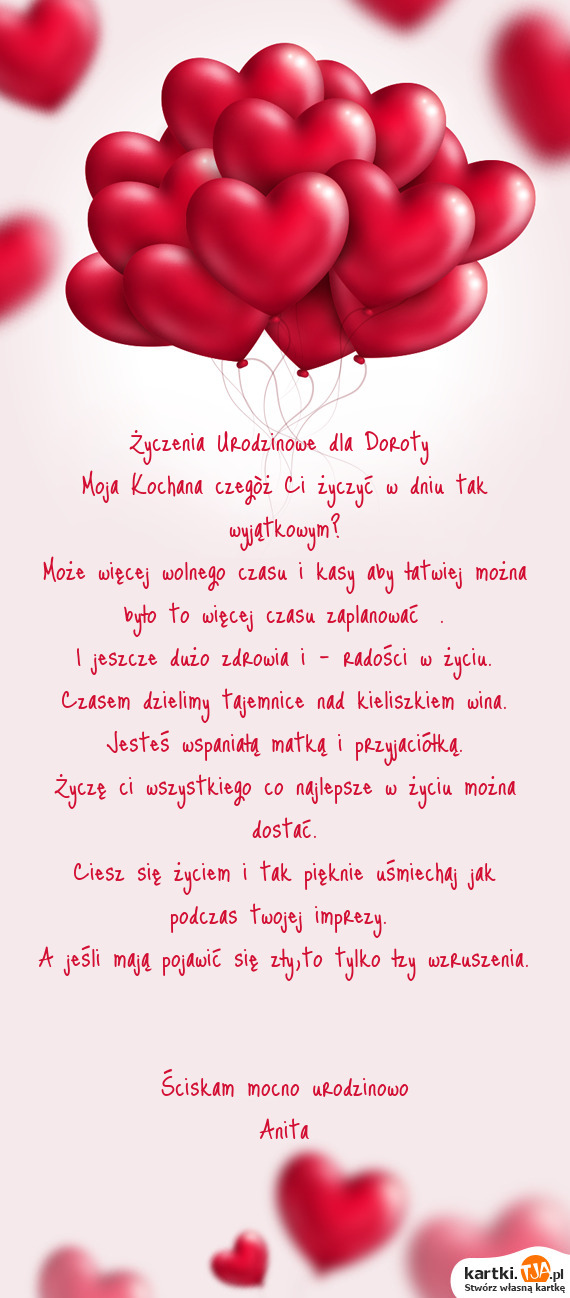 Życzenia Urodzinowe dla Doroty
Moja Kochana czegòż Ci życzyć w dniu tak
wyjątkowym?
Może więcej wolnego czasu i kasy aby łatwiej można
było to więcej czasu zaplanować .
I jeszcze dużo zdrowia i - radości w życiu.
Czasem dzielimy tajemnice nad kieliszkiem wina.
Jesteś wspaniałą matką i przyjaciółką.
Życzę ci wszystkiego co najlepsze w życiu można
dostać.
Ciesz się życiem i tak pięknie uśmiechaj jak
podczas twojej imprezy.
A jeśli mają pojawić się zły,to tylko łzy wzruszenia.
Ściskam mocno urodzinowo
Anita
kartki.TJA.pl
Stwórz własną kartkę